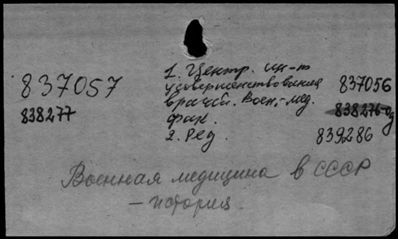 1. Центр. ин-т
837057 усовершенствования 837056
врачей. Воен.-мед.
838277 фак. 838276-од
2. Ред 839286
Военная медицина в СССР
- история.